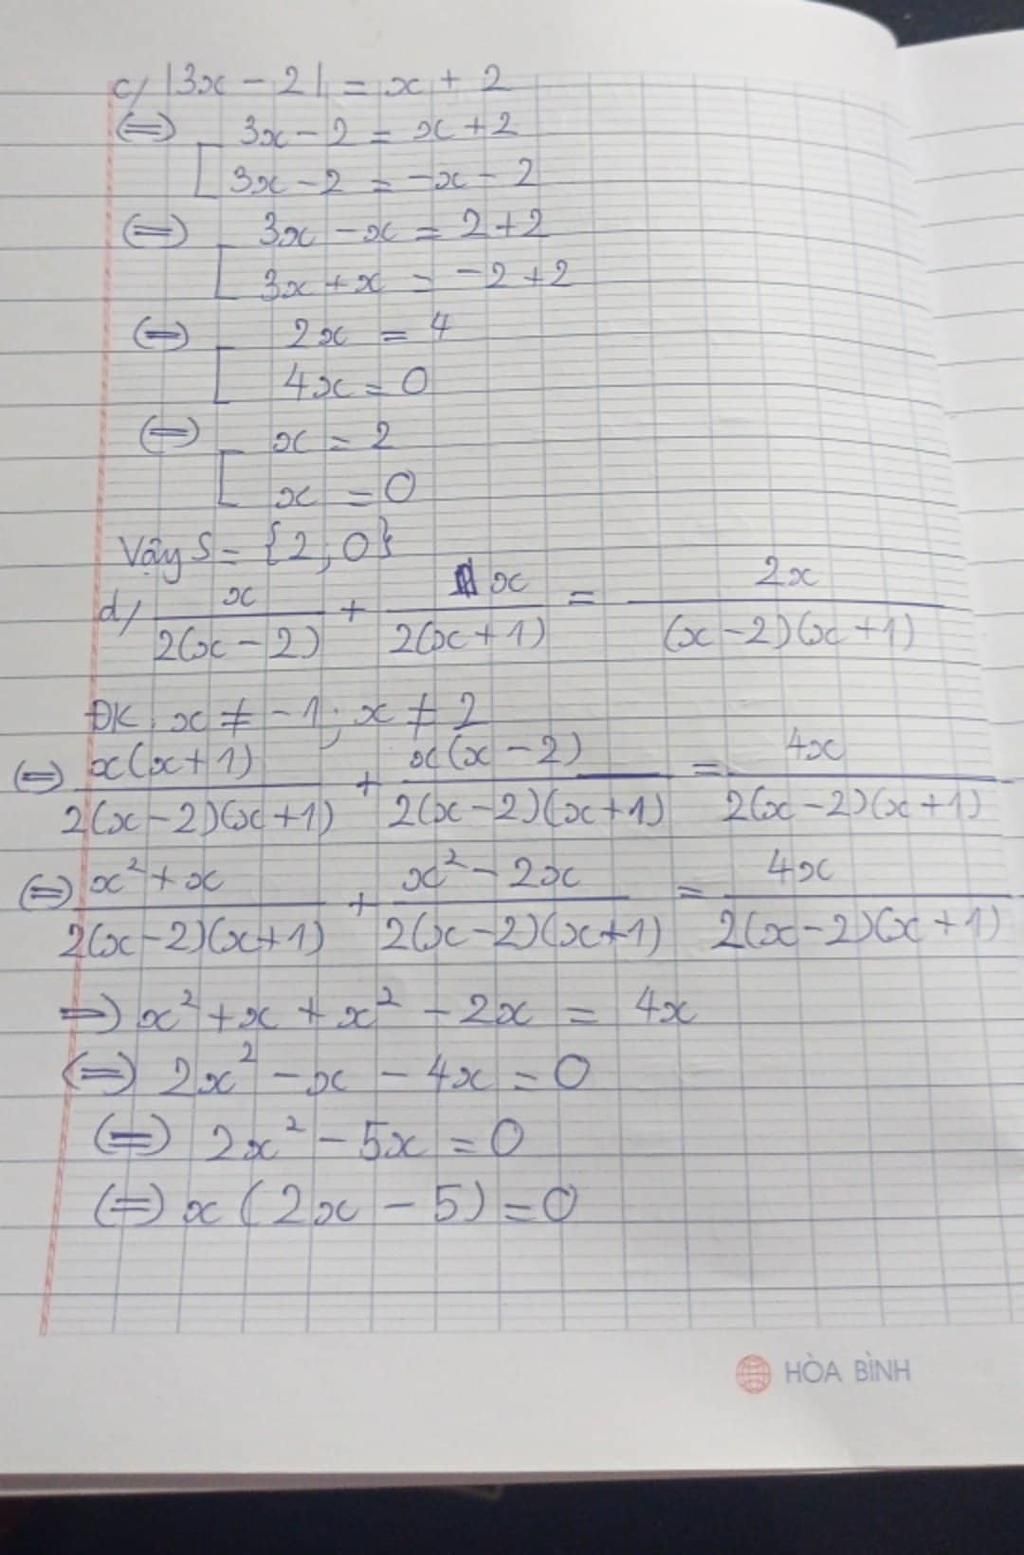 c/ |3x - 2| = x + 2
(=) [ 3x - 2 = x + 2
3x - 2 = -x - 2
(=) [ 3x - x = 2 + 2
3x + x = -2 + 2
(=) [ 2x = 4
4x = 0
(=) [ x = 2
x = 0
Vậy S = {2; 0}
d/ x/2(x - 2) + x/2(x + 1) = 2x/(x - 2)(x + 1)
ĐK: x ≠ -1; x ≠ 2
(=) x(x + 1)/2(x - 2)(x + 1) + x(x - 2)/2(x - 2)(x + 1) = 4x/2(x - 2)(x + 1)
(=) x² + x/2(x - 2)(x + 1) + x² - 2x/2(x - 2)(x + 1) = 4x/2(x - 2)(x + 1)
=) x² + x + x² - 2x = 4x
(=) 2x² - x - 4x = 0
(=) 2x² - 5x = 0
(=) x(2x - 5) = 0
HÒA BÌNH